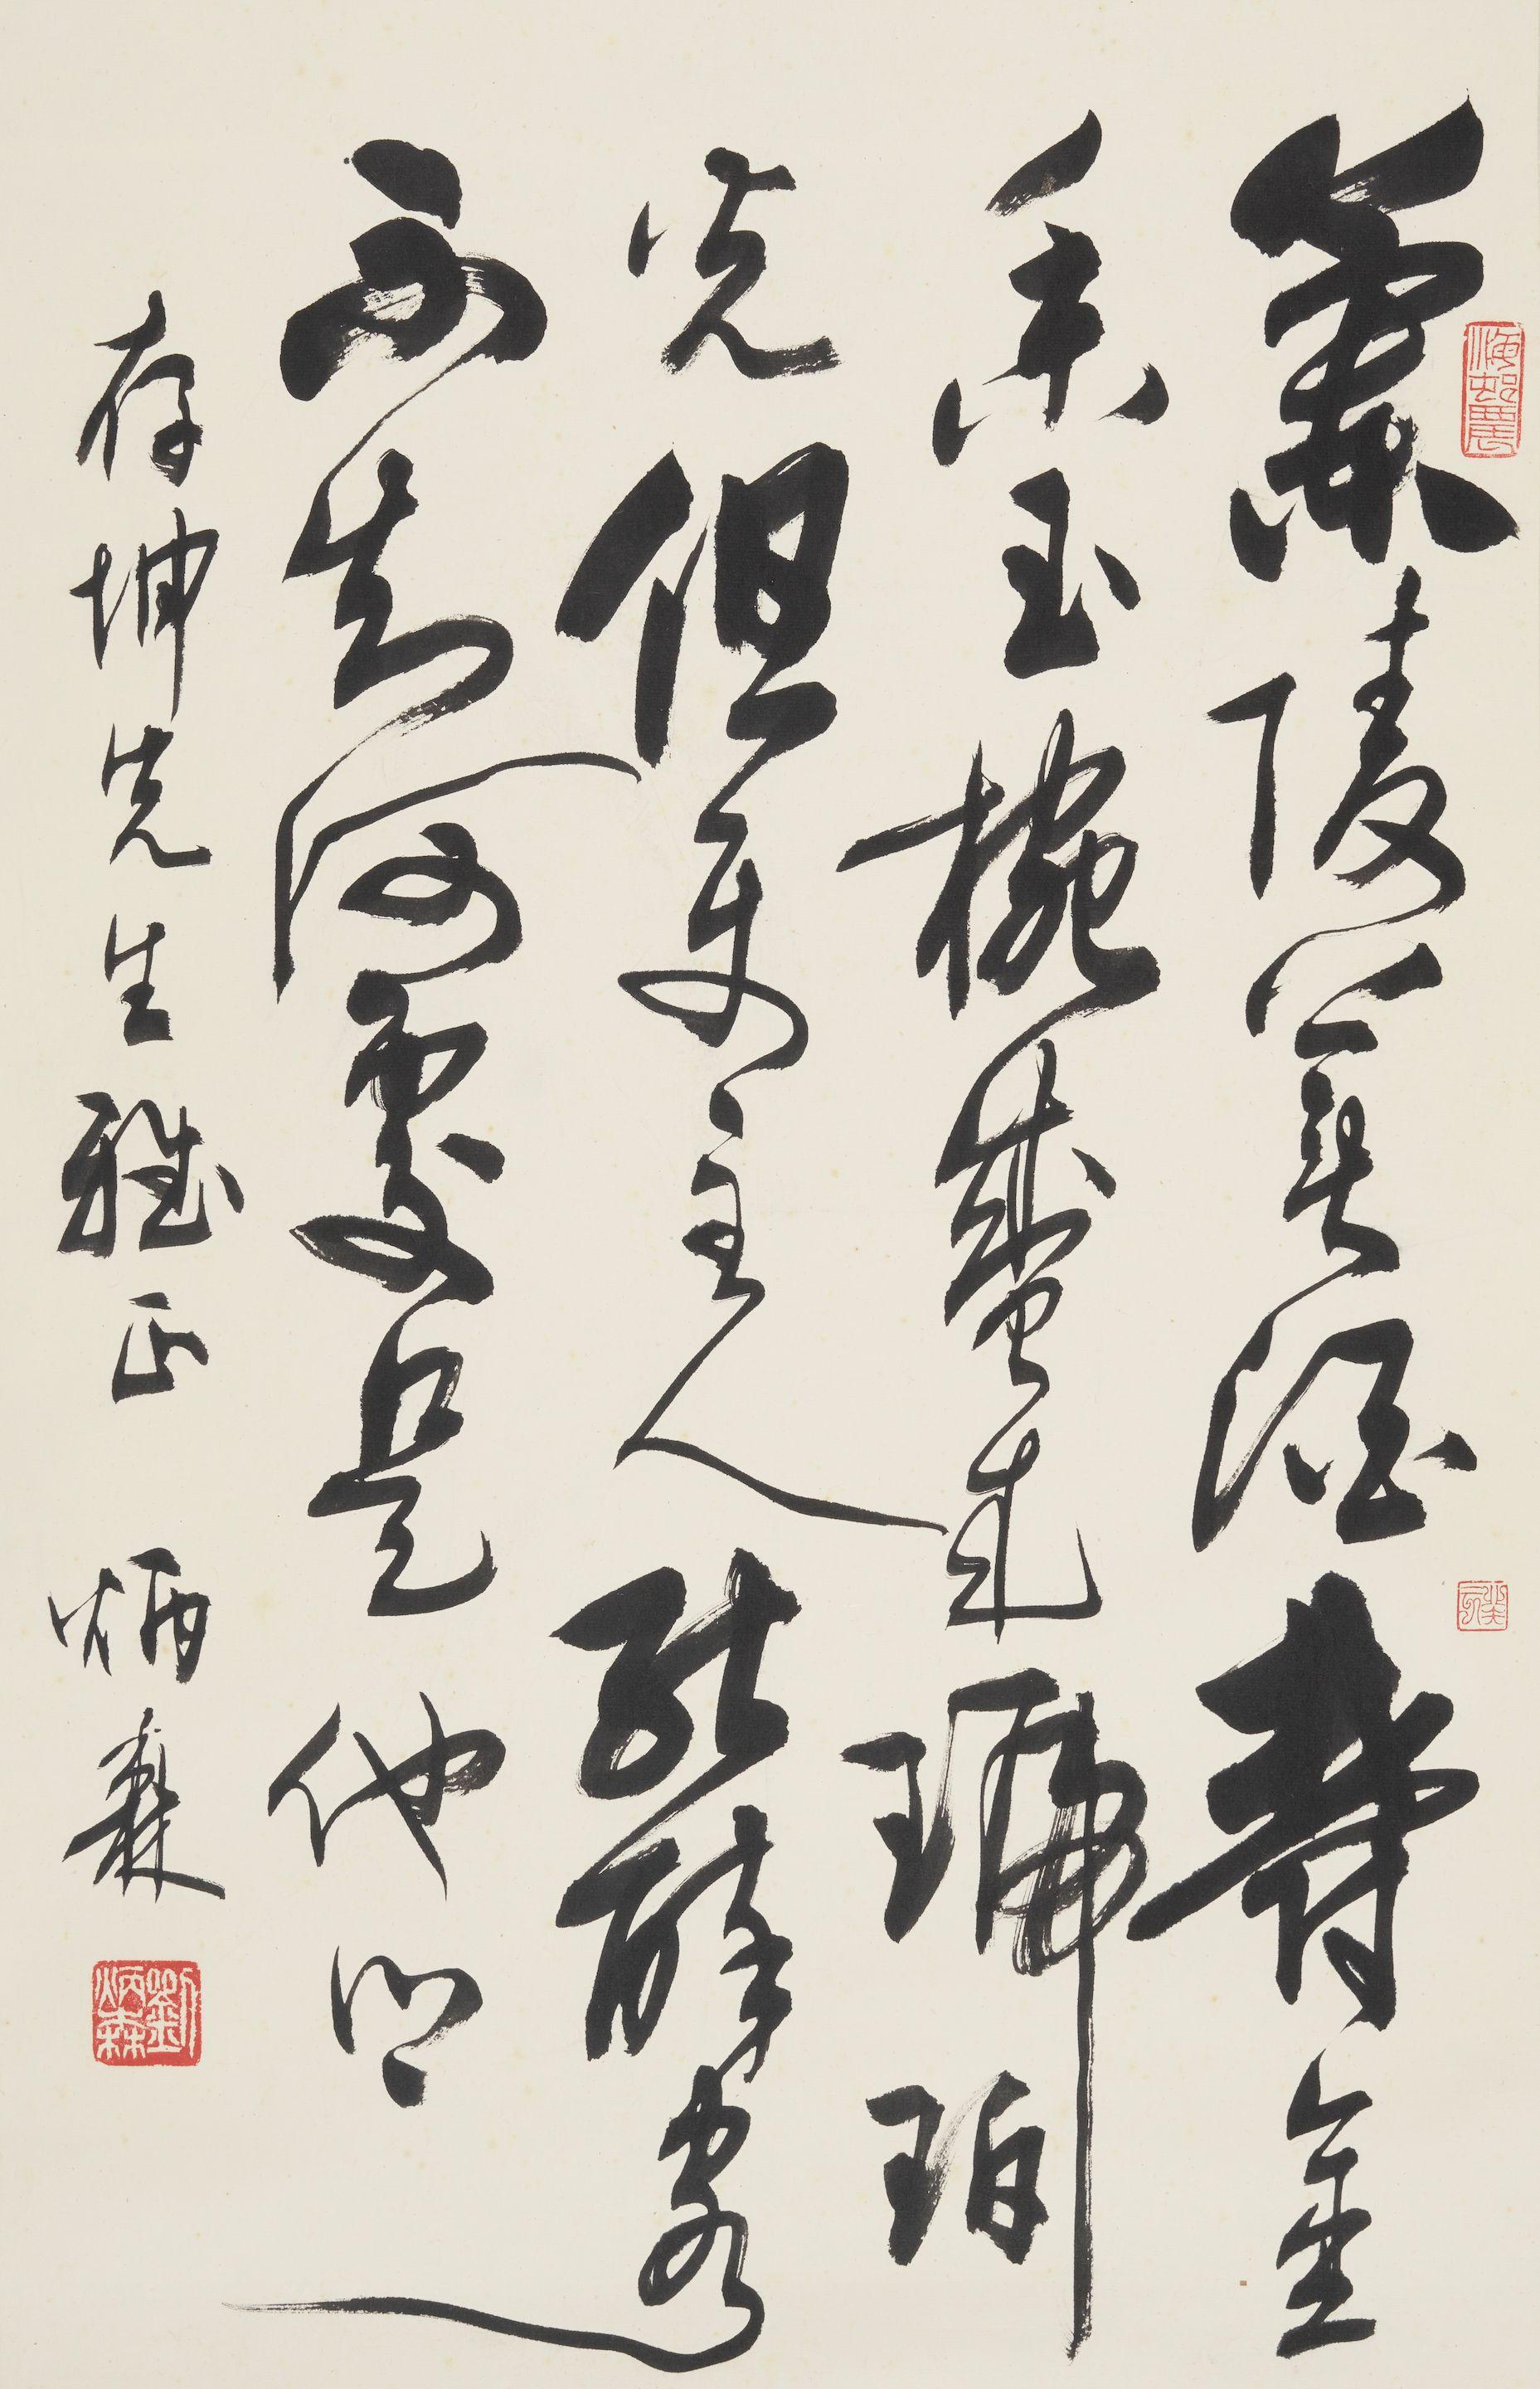 海邨農
蘭陵美酒鬱金
香玉椀盛來琥珀
光但使主人能醉客
不知何處是他鄉
存坤先生雅正 炳森
劉炳森